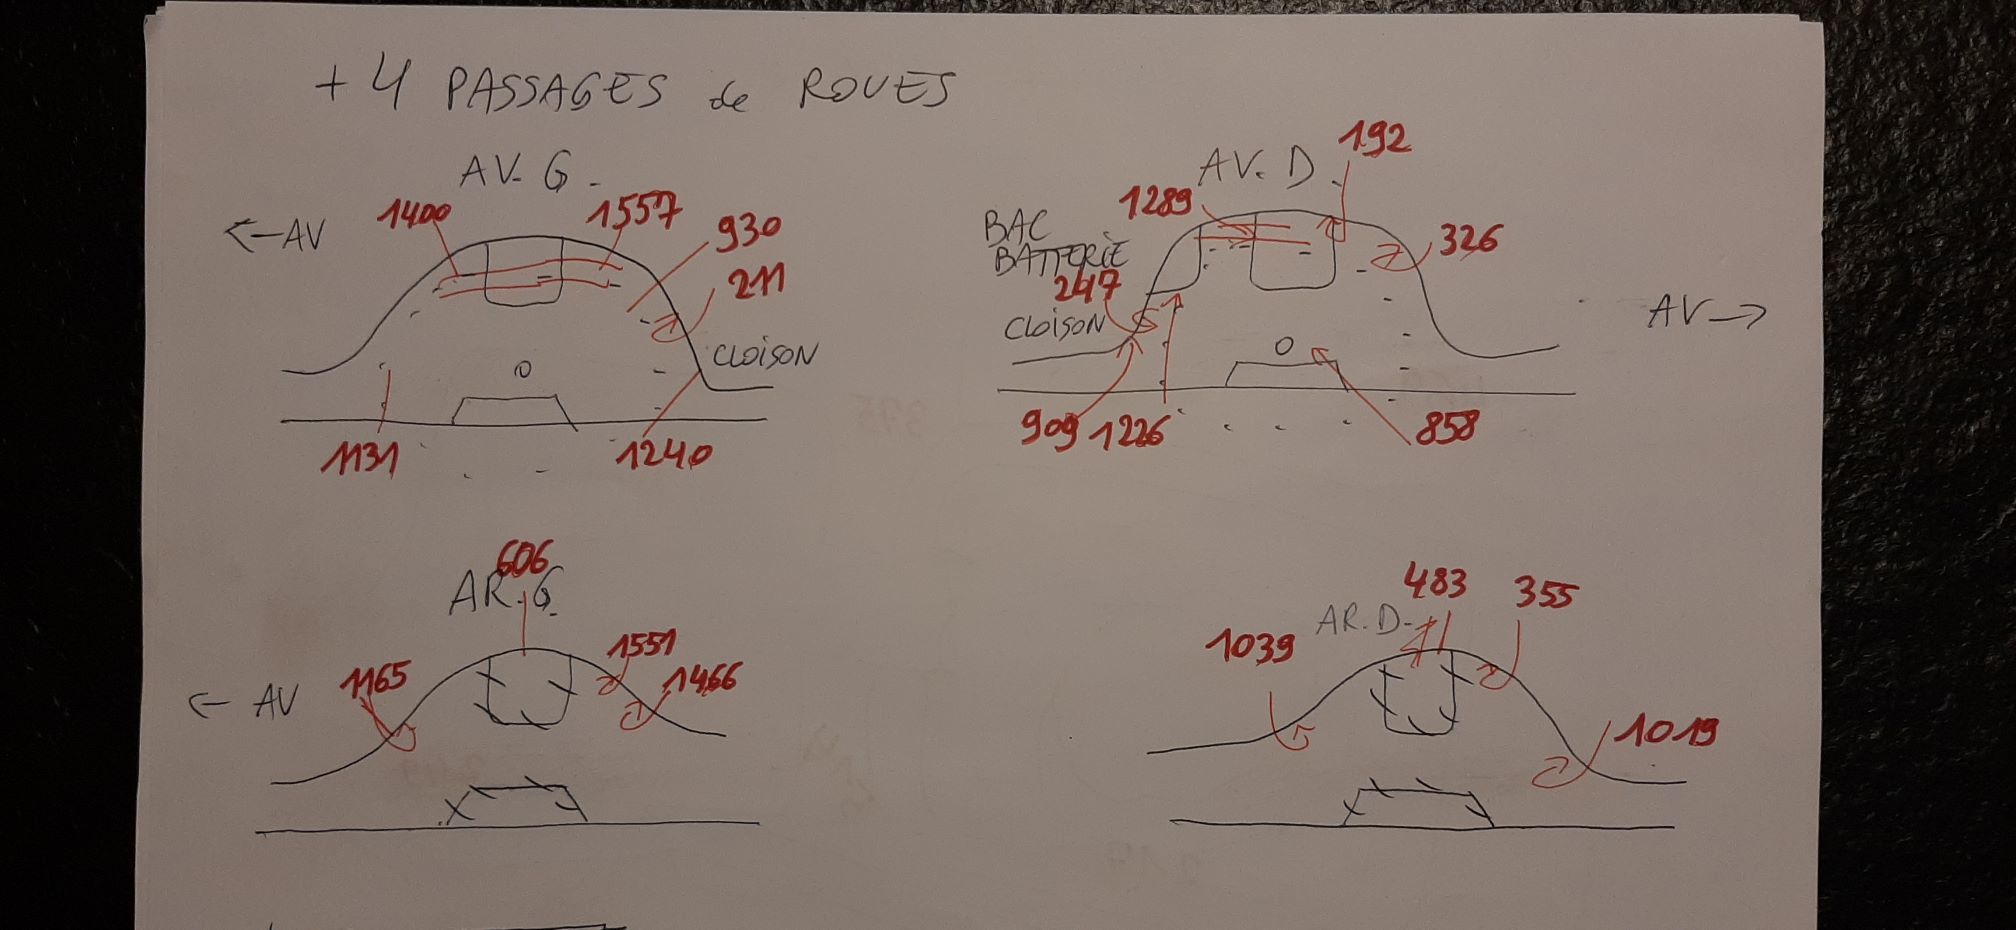 + 4 PASSAGES de ROUES
AV. G.
← AV
1400
1557
930
211
CLOISON
1131
1240
AV. D
192
1289
BAC
BATTERIE
247
CLOISON
326
AV →
909
1226
858
606
AR. G.
← AV
1165
1551
1466
483
355
AR. D.
1039
1019